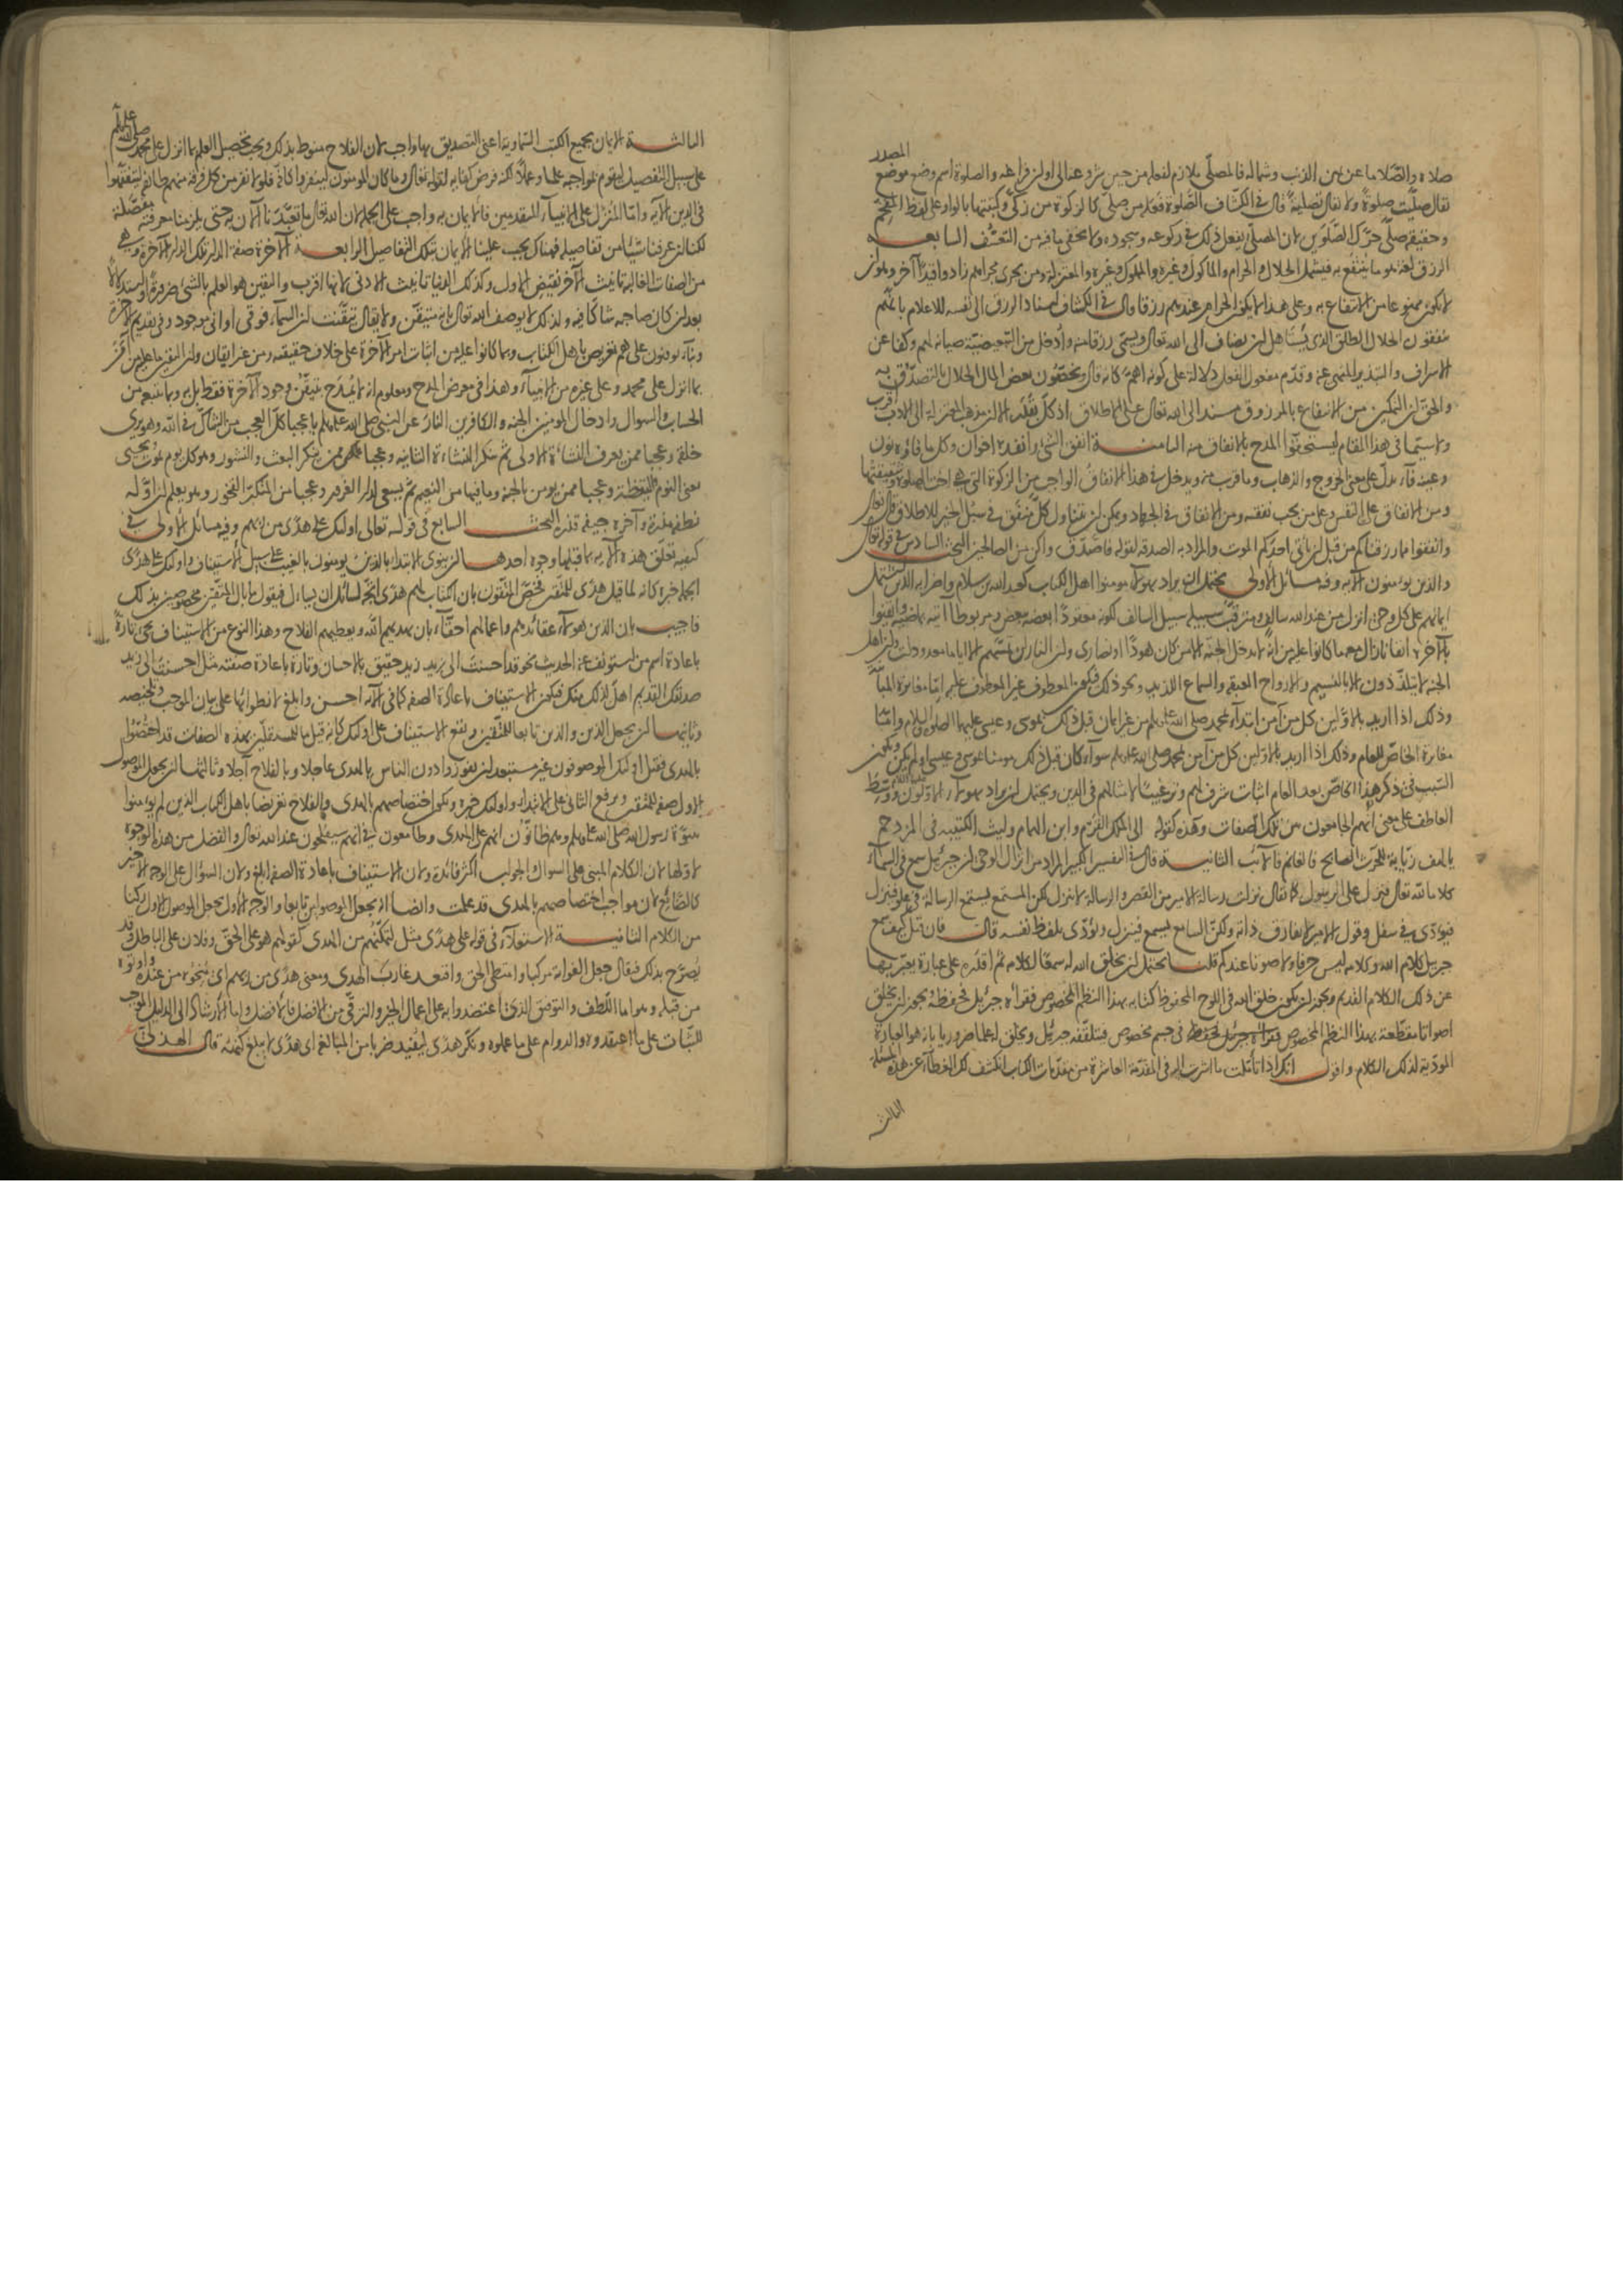 المصدر
صلاه والصلا ما عن يمين الذنب وشماله فالمصلي ملازم لفعله من حين شروعه الى اوان فراغه والصلوة اسم وضع موضع
يقال صليت صلوة ولا يقال تصلية قال في الكشاف الصلوة فعلة من صلى كالزكوة من زكى وكتبتها بالواو على لفظ المفخم
وحقيقة صلى حرك الصلوين لان المصلي يفعل ذلك في ركوعه وسجوده ولا يخفى ما فيه من التعسف السابعة
الرزق لغة هو ما ينتفع به فيشمل الحلال والحرام والماكول وغيره والمملوك وغيره والمعتزلة ومن يجرى مجراهم زادوا قيدا آخر وهو ان
لا يكون ممنوعا من الانتفاع به وعلى هذا لا يكون الحرام عندهم رزقا قال في الكشاف اسناد الرزق الى نفسه للاعلام بانهم
ينفقون الحلال الطلق الذي يستاهل ان يضاف الى الله تعالى ويسمى رزقا منه وأدخل من التبعيضية صيانة لهم وكفا عن
الاسراف والتبذير المنهي عنه وقدم مفعول الفعل دلالة على كونه اهم كانه قال ويخصون بعض المال الحلال بالتصدق به
والحق ان التمكين من الانتفاع بالمرزوق مسند الى الله تعالى على الاطلاق اذ كل بقدره الا ان مذهب المعتزلة الى الادب اقرب
ولا سيما في هذا المقام ليستحقوا المدح بالانفاق منه الثامنة انفق الشيء وانفده اخوان وكل ما فاؤه نون
وعينه فاء يدل على معنى الخروج والذهاب وما قرب منه ويدخل في هذا الانفاق الواجب من الزكوة التي هي اخت الصلوة وشقيقتها
ومن الانفاق على النفس وعلى من يجب نفقته ومن الانفاق في الجهاد ويمكن ان يتناول كل منفق في سبيل الخير للاطلاق قال تعالى
وانفقوا مما رزقناكم من قبل ان ياتي احدكم الموت والمراد به الصدقة لقوله فاصدق واكن من الصالحين البحث السادس في قوله تعالى
والذين يؤمنون الآية وفيه مسائل الأولى يحتمل ان يراد بهؤلاء مؤمنوا اهل الكتاب كعبد الله بن سلام واضرابه الذين اشتمل
ايمانهم على كل وحي انزل من عند الله سالف ومترقب سبيله سبيل السالف لكونه معقودا بعضه ببعض ومربوطا آتيه بماضيه وايقنوا
بالآخرة ايقانا زال معه ما كانوا عليه من انه لا يدخل الجنة الا من كان هودا او نصارى وان النار لن تمسهم الا اياما معدودات وان اهل
الجنة لا يتلذذون الا بالنسيم والارواح العبقة والسماع اللذيذ ونحو ذلك فيكون المعطوف غير المعطوف عليه اما مغايرة المباينة
وذلك اذا اريد بالاولين كل من آمن ابتداء بمحمد صلى الله عليه وسلم من غير ايمان قبل ذلك بموسى وعيسى عليهما الصلوة والسلام واما
مغايرة الخاص للعام وذلك اذا اريد بالاولين كل من آمن بمحمد صلى الله عليه وسلم سواء كان قبل ذلك مؤمنا بموسى وعيسى او لم يكن ويكون
السبب في ذكر هذا الخاص بعد العام اثبات شرف لهم وترغيبا لامثالهم في الدين ويحتمل ان يراد بهؤلاء الاولون ووسط
العاطف على معنى انهم الجامعون بين تلك الصفات وهذه كقوله الى الملك القرم وابن الهمام وليث الكتيبة في المزدحم
يا لهف زيابة للحرث الصابح فالغانم فالآئب الثانية قال في التفسير الكبير المراد من انزال الوحي ان جبريل سمع في السماء
كلام الله تعالى فنزل على الرسول كما يقال نزلت رسالة الامير من القصر والرسالة لا تنزل لكن المستمع يسمع الرسالة في علو فينزل
فيؤدي في سفل وقول الامير لا يفارق ذاته ولكن السامع يسمع فينزل ويؤدي بلفظ نفسه قال فان قيل كيف سمع
جبريل كلام الله وكلامه ليس حرفا ولا صوتا عندكم قلت يحتمل ان يخلق الله له سمعا لكلامه ثم اقدره على عبارة يعبر بها
عن ذلك الكلام القديم ويجوز ان يكون خلق الله في اللوح المحفوظ كتابه بهذا النظم المخصوص فقرأه جبريل فحفظه ويجوز ان يخلق
اصواتا مقطعة بهذا النظم المخصوص في جسم مخصوص فيتلقفه جبريل ويخلق له علما ضروريا بانه هو العبارة
المؤدية لذلك الكلام واقول انك اذا تأملت ما اشرت اليه في المقدمة العاشرة من مقدمات الكتاب انكشف لك الغطاء عن هذه المسئلة
الثالثة
الثالثة الايمان بجميع الكتب السماوية اعني التصديق بها واجب لان الفلاح منوط بذلك ويجب تحصيل العلم بما انزل على محمد صلى الله عليه وسلم
على سبيل التفصيل ليقوم بمواجبه علما وعملا لكنه فرض كفاية لقوله تعالى وما كان المؤمنون لينفروا كافة فلولا نفر من كل فرقة منهم طائفة ليتفقهوا
في الدين الآية واما المنزل على الانبياء المتقدمين فالايمان به واجب على الجملة لان الله تعالى ما تعبدنا الآن به حتى يلزمنا معرفته مفصلة
لكنا ان عرفنا شيئا من تفاصيله فهناك يجب علينا الايمان بتلك التفاصيل الرابعة الآخرة صفة الدار تلك الدار الآخرة وهي
من الصفات الغالبة تأنيث الآخر نقيض الاول وكذلك الدنيا تأنيث الادنى لانها اقرب واليقين هو العلم بالشيء ضرورة او استدلالا
بعد ان كان صاحبه شاكا فيه ولذلك لا يوصف الله تعالى بانه متيقن ولا يقال تيقنت ان السماء فوقي او اني موجود وفي تقديم الآخرة
وبناء يوقنون على هم تعريض باهل الكتاب وبما كانوا عليه من اثبات امر الآخرة على خلاف حقيقته من غير ايقان وان اليقين ما عليه من آمن
بما انزل على محمد وعلى غيره من الانبياء وهذا في معرض المدح ومعلوم انه لا يمدح بتيقن وجود الآخرة فقط بل به وبما يتبعه من
الحساب والسؤال وادخال المؤمنين الجنة والكافرين النار عن النبي صلى الله عليه وسلم يا عجبا كل العجب من الشاك في الله وهو يرى
خلقه وعجبا ممن يعرف النشأة الاولى ثم ينكر النشاءة الثانية وعجبا ممن ينكر البعث والنشور وهو كل يوم يموت ويحيى
يعني النوم واليقظة وعجبا ممن يؤمن بالجنة وما فيها من النعيم ثم يسعى لدار الغرور وعجبا من المتكبر الفخور وهو يعلم ان اوله
نطفة مذرة وآخره جيفة قذرة البحث السابع في قوله تعالى اولئك على هدى من ربهم وفيه مسائل الاولى في
كيفية تعلق هذه الآية بما قبلها وجوه احدها ان ينوى الابتدا بالذين يؤمنون بالغيب على سبيل الاستيناف واولئك على هدى
الجملة خبره كانه لما قيل هدى للمتقين فخص المتقون بان الكتاب لهم هدى اتجه لسائل ان يسأل فيقول ما بال المتقين مخصوصين بذلك
فاجيب بان الذين هؤلاء عقائدهم واعمالهم احقاء بان يهديهم الله ويعطيهم الفلاح وهذا النوع من الاستيناف يجيء تارة
باعادة اسم من استونف عنه الحديث نحو قد احسنت الى زيد زيد حقيق بالاحسان وتارة باعادة صفته مثل احسنت الى زيد
صديقك القديم اهل لذلك منك فيكون الاستيناف باعادة الصفة كما في الآية احسن وابلغ لانطوائها على بيان الموجب وتلخيصه
وثانيها ان يجعل الذين والذين تابعا للمتقين ويقع الاستيناف على اولئك كانه قيل ما للمستقلين بهذه الصفات قد اختصوا
بالهدى فقيل اولئك الموصوفون غير مستبعد ان يفوزوا دون الناس بالهدى عاجلا وبالفلاح آجلا وثالثها ان يجعل الموصول
الاول صفة للمتقين ويرفع الثاني على الابتداء واولئك خبره ويكون اختصاصهم بالهدى والفلاح تعريضا باهل الكتاب الذين لم يؤمنوا
بنبوة رسول الله صلى الله عليه وسلم وهم ظانون انهم على الهدى وطامعون في انهم سيفلحون عند الله تعالى والفضل من هذه الوجوه
لاولها لان الكلام المبني على السؤال والجواب اكثر فائدة ولان الاستيناف باعادة الصفة ابلغ ولان السؤال على الوجه الاخير
كالضائع لان مواجب اختصاصهم بالهدى قد علمت وايضا ان يجعل الموصولين تابعا والوجه الاول يجعل الموصول الاول ركنا
من الكلام الثانية الاستعلاء في قوله على هدى مثل لتمكنهم من الهدى كقولهم هو على الحق وفلان على الباطل وقد
يصرح بذلك فيقال جعل الغواية مركبا وامتطى الحق واقتعد غارب الهدى ومعنى هدى من ربهم اى منحوه من عنده واوتوه
من قبله وهو اما اللطف والتوفيق الذي اعتضدوا به على اعمال الخير والترقي من الافضل فالافضل واما الارشاد الى الدليل الموجب
للثبات على ما اعتقدوه والدوام على ما عملوه ونكر هدى ليفيد ضربا من المبالغة اى هدى لا يبلغ كنهه قال الهذلي